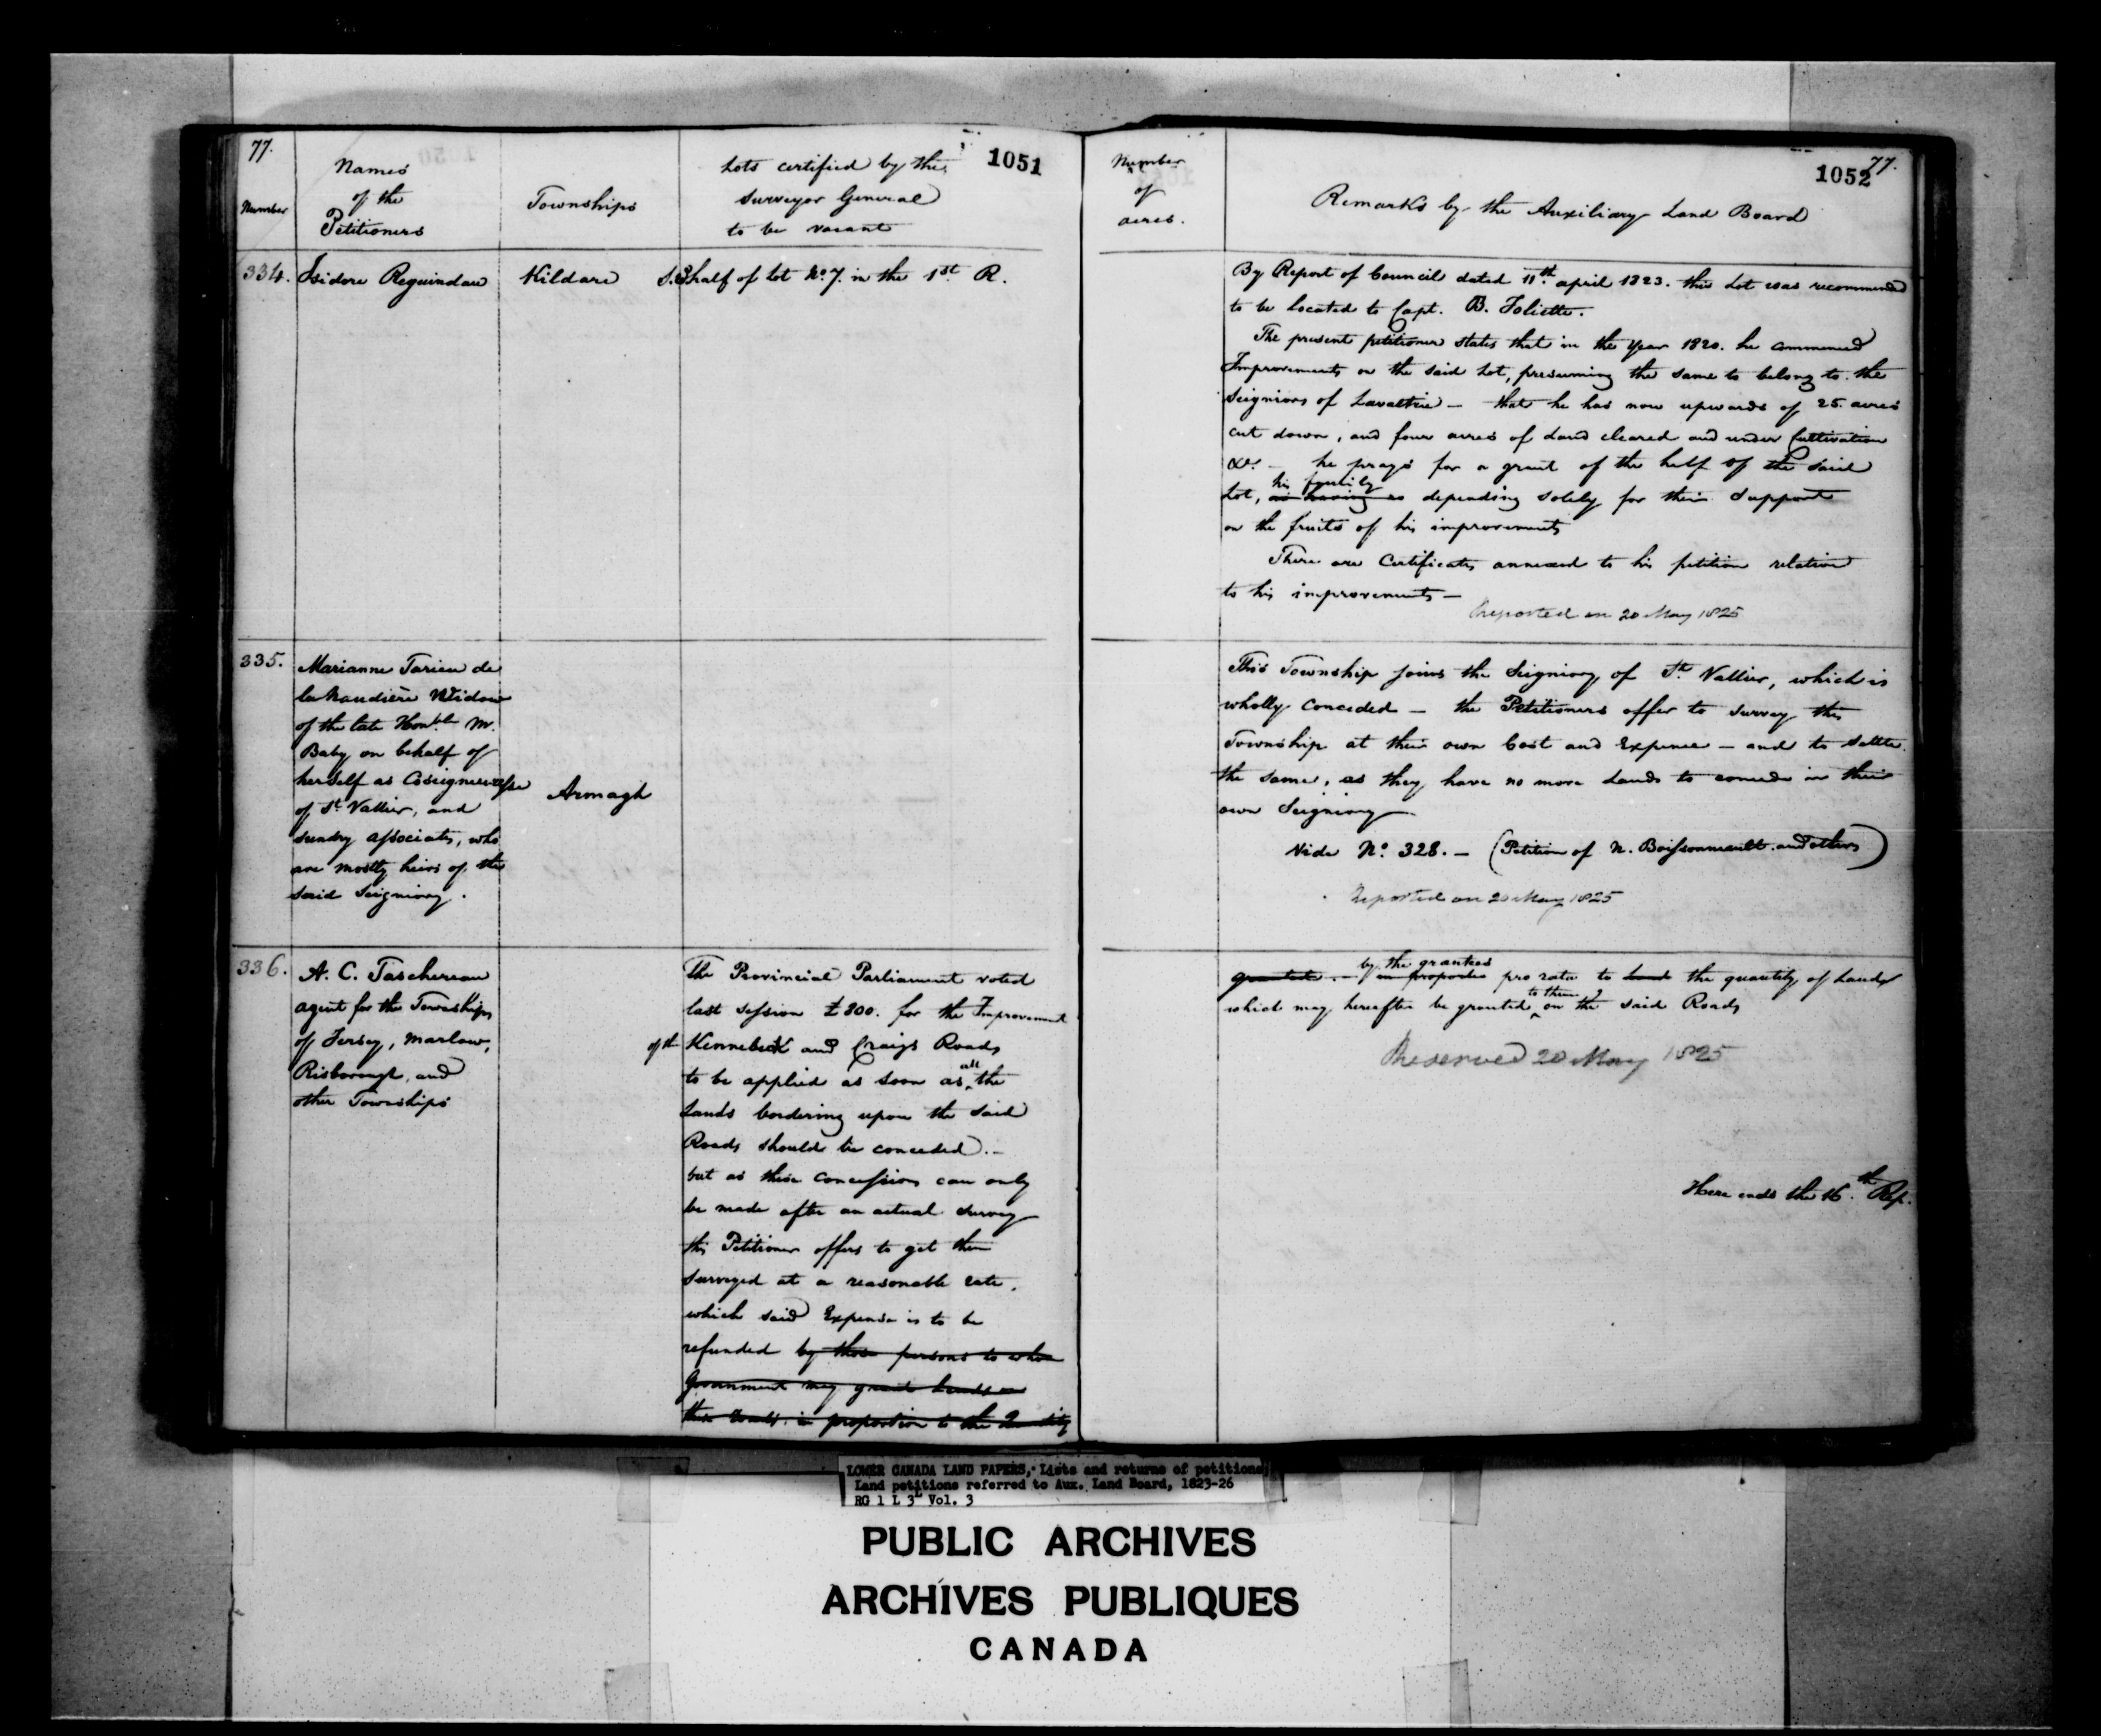 77.
1051
Number
Names
of the
Petitioners
Townships
Lots certified by the
Surveyor General
to be vacant
334.
Isidore Reguindau
Kildare
S.E half of Lot No. 7. in the 1st R.
335.
Marianne Tarieu de
la Naudière Widow
of the late Honble Mr.
Baby on behalf of
herself as Coseigneuresse
of St. Vallier, and
sundry associates, who
are mostly heirs of the
said Seigniory.
Armagh
336.
A. C. Taschereau
agent for the Townships
of Jersey, Marlow,
Risborough, and
other Townships
The Provincial Parliament voted
last session £300. for the Improvement
of the Kennebeck and Craigs Roads
to be applied as soon as all the
Lands bordering upon the said
Roads should be conceded. –
but as these concessions can only
be made after an actual survey
this Petitioner offers to get them
surveyed at a reasonable rate.
which said Expense is to be
refunded by those persons to whom
Government may grant Lands on
these roads in proportion to the Quantity
1052
77.
Number
of
acres.
Remarks by the Auxiliary Land Board
By Report of Council dated 11th april 1823. this Lot was recommended
to be Located to Capt. B. Joliette.
The present petitioner states that in the Year 1820. he commenced
Improvements on the said Lot, presuming the same to belong to the
Seigniors of Lavaltrie – that he has now upwards of 25. acres
cut down, and four acres of Land cleared and under Cultivation
&c. – he prays for a grant of the half of the said
his family
Lot, as having as depending solely for their Support
on the fruits of his improvements
There are Certificates annexed to his petition relative
to his improvements –
Reported on 20 May 1825
This Township joins the Seigniory of St. Vallier, which is
wholly Conceded – the Petitioners offer to survey this
Township at their own Cost and Expence – and to settle
the same, as they have no more Lands to concede in their
own Seigniory
Vide No. 328. – (Petition of N. Boissonneault and others)
Reported on 20 May 1825
by the grantees
granted. – in proportion pro rata to the quantity of Lands
which may hereafter be granted to them on the said Roads
Reserved 20 May 1825
Here ends the 16th Rep.
LOWER CANADA LAND PAPERS, Lists and returns of petitions
Land petitions referred to Aux. Land Board, 1823-26
RG 1 L 3L Vol. 3
PUBLIC ARCHIVES
ARCHIVES PUBLIQUES
CANADA